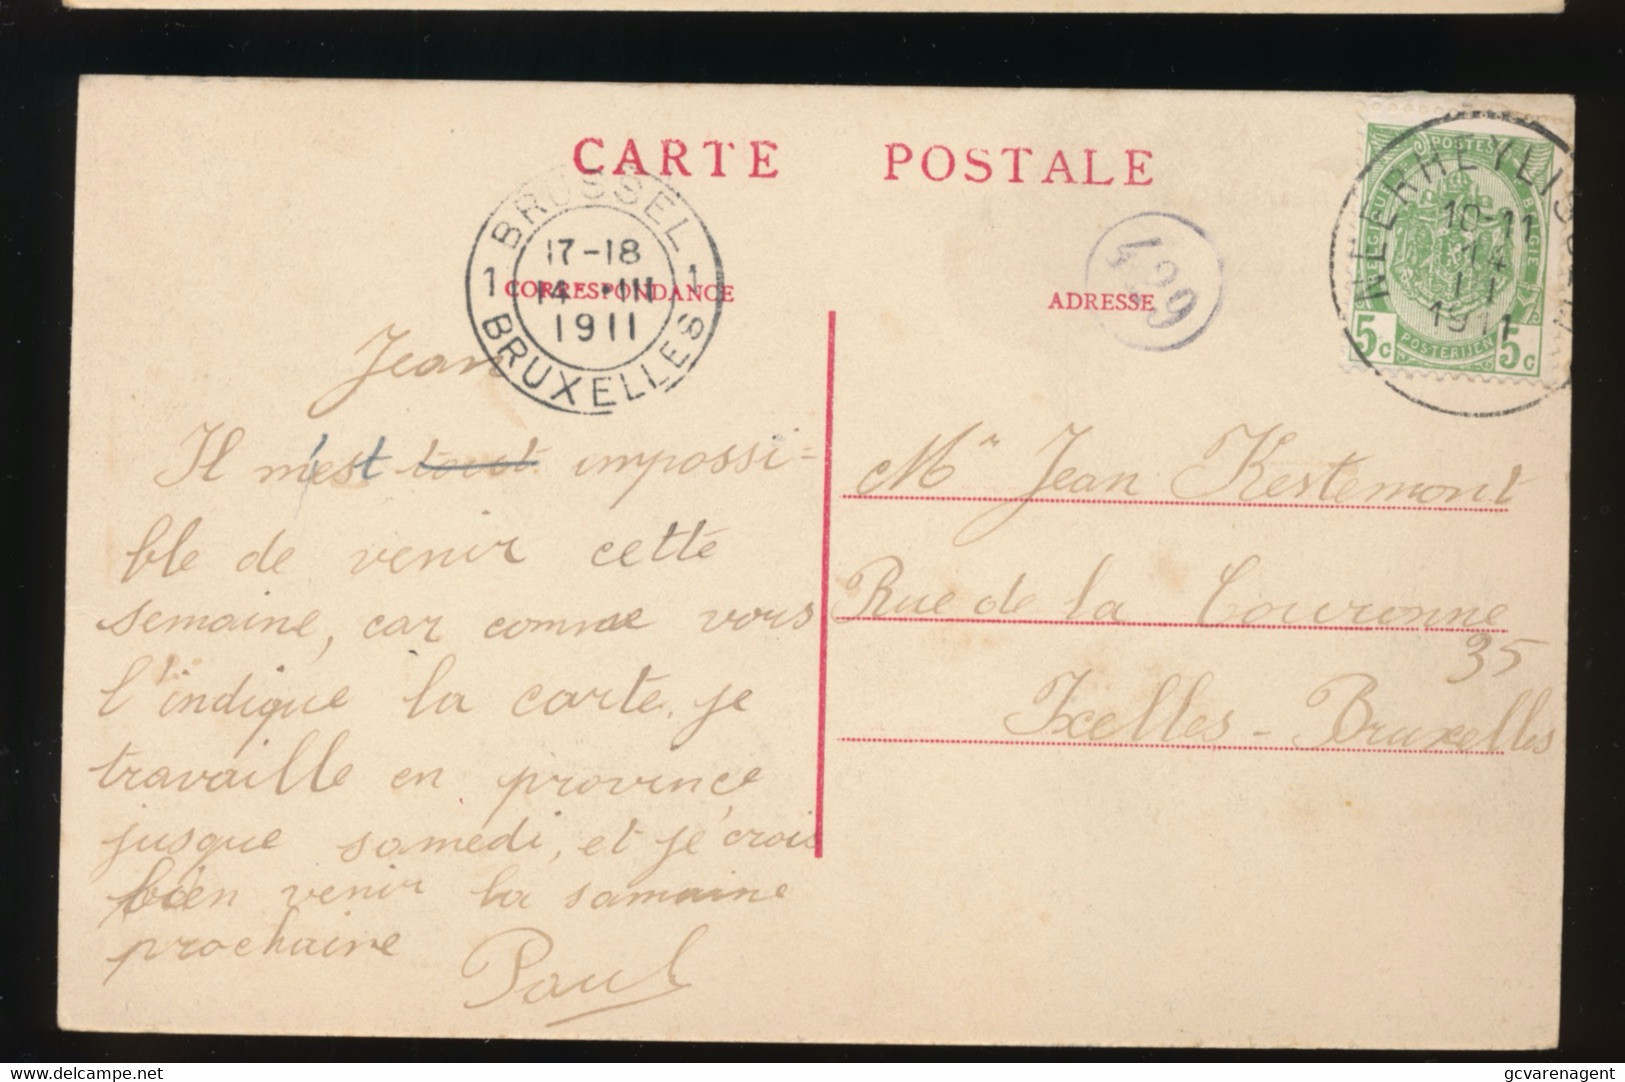 CARTE POSTALE
BRUSSEL
17-18
14 III
1911
1 1
BRUXELLES
CORRESPONDANCE
ADRESSE
499
NEERHEYLISSEM
10-11
14
III
1911
POSTES
BELGIQUE BELGIE
5c 5c
POSTERIJEN
Jean
Il m'est tout impossi=
ble de venir cette
semaine, car comme vous
l'indique la carte, je
travaille en province
jusque samedi, et je crois
bien venir la samaine
prochaine
Paul
Mr Jean Kestemont
Rue de la Couronne
35
Ixelles - Bruxelles
https://www.delcampe.net
gcvarenagent